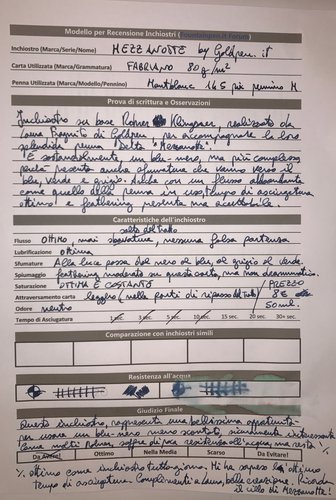 Modello per Recensione Inchiostri (fountainpen.it Forum)
Inchiostro (Marca/Serie/Nome) MEZZANOTTE by Goldpen.it
Carta Utilizzata (Marca/Grammatura) FABRIANO 80 g/m²
Penna Utilizzata (Marca/Modello/Pennino) Montblanc 145 più pennino M
Prova di scrittura e Osservazioni
Inchiostro su base Rohrer Klingner, realizzato da
Laura di Goldpen, per accompagnare la loro
splendida penna "Delta "Mezzanotte".
È sostanzialmente un blu-nero, ma più complesso
poiché presenta anche sfumature che vanno verso il
blu, verde e grigio. Anche con un flusso abbondante
come quello della penna in uso, tempo di asciugatura
ottimo! e feathering presente ma accettabile.
Caratteristiche dell'inchiostro
salto del tratto
Flusso OTTIMO, mai sbavature, nessuna falsa partenza
Lubrificazione ottima
Sfumature Alla luce passa dal nero al blu, al grigio al verde.
Spiumaggio feathering moderato su questa carta, ma non drammatico.
Saturazione OTTIMA E COSTANTE PREZZO
Attraversamento carta leggero (nelle parti di ripasso del tratto) 8€
Odore neutro 50 ml.
Tempo di Asciugatura 1 sec. 5 sec. 10 sec. 15 sec. 20 sec. 30+ sec.
Comparazione con inchiostri simili
Resistenza all'acqua
Giudizio Finale
Questo inchiostro, rappresenta una bellissima opportunità
per usare un blu-nero meno scontato, sicuramente interessante
come molti Rohrer, soffre di poca resistenza all'acqua, ma resta
Da Avere! Ottimo Nella Media Scarso Da Evitare!
ottimo come inchiostro tuttogiorno. Mi ha sorpreso l'ottimo
tempo di asciugatura. Complimenti a Laura, bella creazione. Ricorda
il cielo di Mezzanotte!